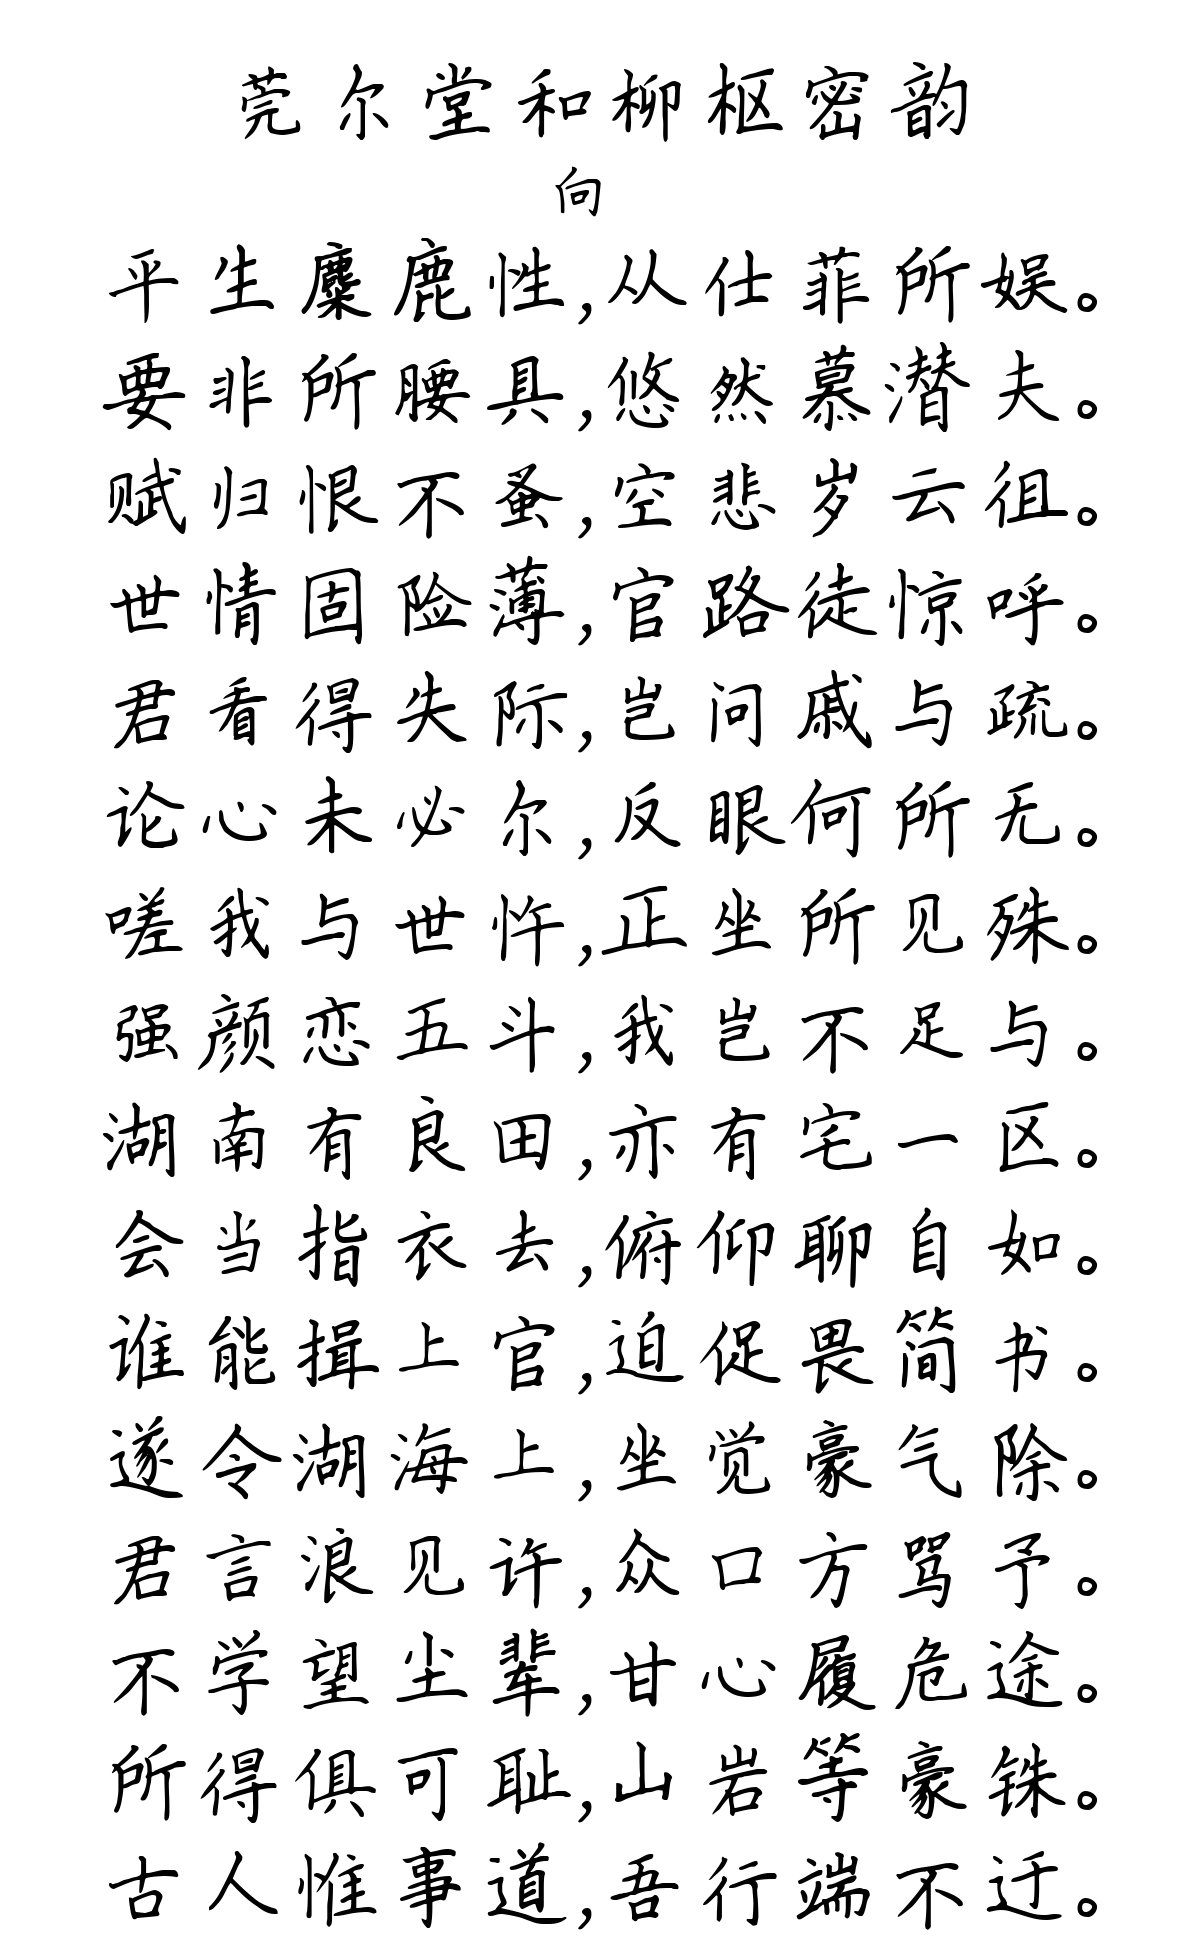 莞尔堂和柳枢密韵
向
平生麋鹿性,从仕菲所娱。
要非所腰具,悠然慕潜夫。
赋归恨不蚤,空悲岁云徂。
世情固险薄,官路徒惊呼。
君看得失际,岂问戚与疏。
论心未必尔,反眼何所无。
嗟我与世忤,正坐所见殊。
强颜恋五斗,我岂不足与。
湖南有良田,亦有宅一区。
会当指衣去,俯仰聊自如。
谁能揖上官,迫促畏简书。
遂令湖海上,坐觉豪气除。
君言浪见许,众口方骂予。
不学望尘辈,甘心履危途。
所得俱可耻,山岩等豪铢。
古人惟事道,吾行端不迁。